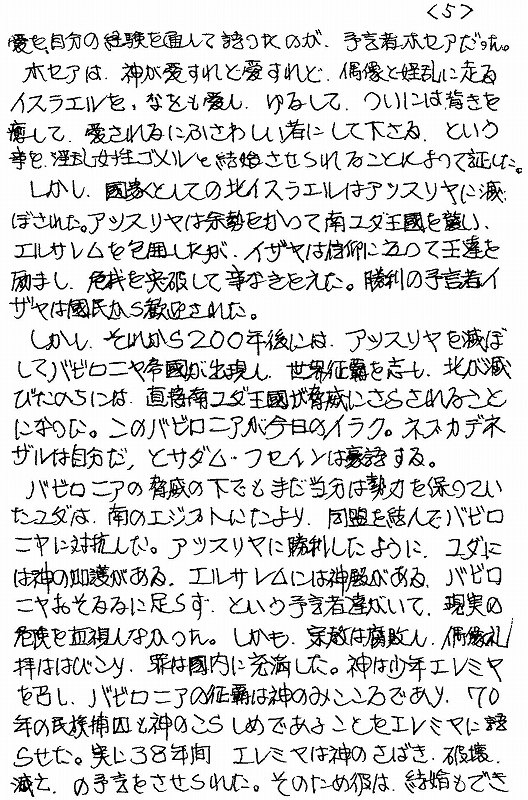 <5>
愛を、自分の経験を通して語ったのが、予言者ホセアだった。
ホセアは、神が愛すれど愛すれど、偶像と婬乱に走る
イスラエルを、なおも愛し、ゆるして、ついには背きを
癒して、愛されるにふさわしい者にして下さる、という
事を、淫乱女性ゴメルと結婚させられることによって証した。
しかし、國家としての北イスラエルはアッスリヤに滅
ぼされた。アッスリヤは余勢をかって南ユダ王國を襲い、
エルサレムを包囲したが、イザヤは信仰に立って王達を
励まし、危機を突破して事なきをえた。勝利の予言者イ
ザヤは國民から歓迎された。
しかし、それから200年後には、アッスリヤを滅ぼ
してバビロニヤ帝國が出現し、世界征覇を志し、北が滅
びたのちには、直接南ユダ王國が脅威にさらされること
になった。このバビロニアが今日のイラク。ネブカデネ
ザルは自分だ、とサダム・フセインは豪語する。
バビロニアの脅威の下でもまだ当分は勢力を保ってい
たユダは、南のエジプトにたより、同盟を結んでバビロ
ニヤに対抗した。アッスリヤに勝利したように、ユダに
は神の加護がある。エルサレムには神殿がある、バビロ
ニヤおそるるに足らず、という予言者達がいて、現実の
危険を直視しなかった。しかも、宗教は腐敗し、偶像礼
拝ははびこり、罪は國内に充満した。神は少年エレミヤ
を召し、バビロニアの征覇は神のみこころであり、70
年の民族捕囚も神のこらしめであることをエレミヤに語
らせた。実に38年間、エレミヤは神のさばき、破壊、
滅亡、の予言をさせられた。そのため彼は、結婚もでき